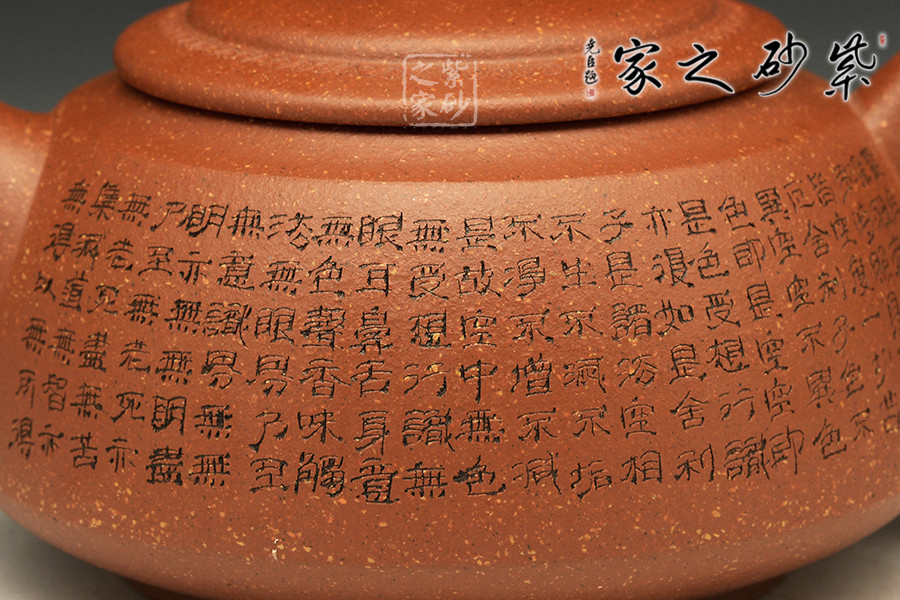 紫砂之家
堯臣題
紫砂
之家
皆空度一切苦
厄舍利子色不
異空空不異色
色即是空空即
是色受想行識
亦復如是舍利
子是諸法空相
不生不滅不垢
不淨不增不減
是故空中無色
無受想行識無
眼耳鼻舌身意
無色聲香味觸
法無眼界乃至
無意識界無無
明亦無無明盡
乃至無老死亦
無老死盡無苦
集滅道無智亦
無得以無所得